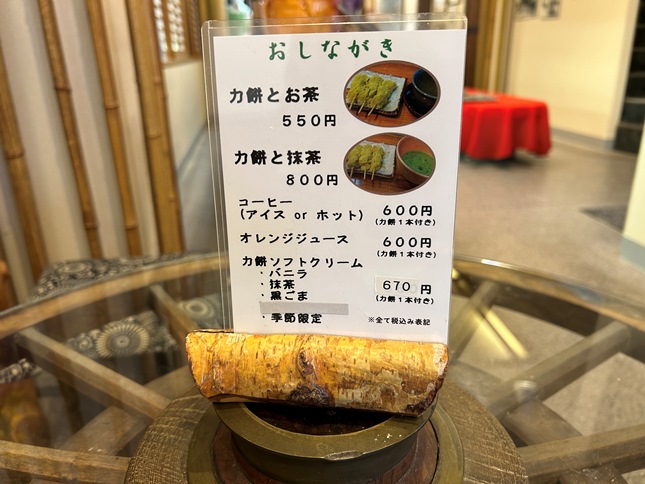 おしながき
力餅とお茶
550円
力餅と抹茶
800円
コーヒー
(アイス or ホット) 600円
(力餅1本付き)
オレンジジュース 600円
(力餅1本付き)
力餅ソフトクリーム
・バニラ
・抹茶 670円
・黒ごま (力餅1本付き)
・季節限定 ※全て税込み表記